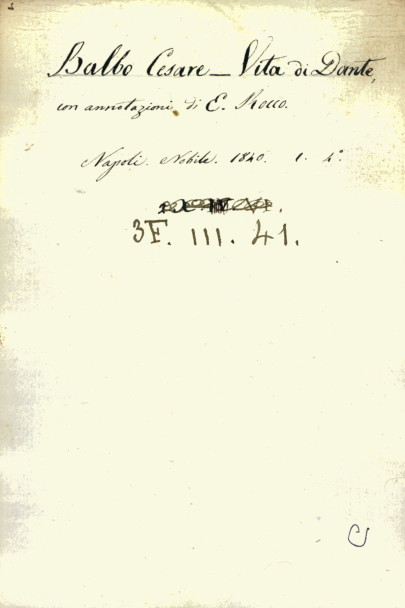 Balbo Cesare – Vita di Dante,
con annotazioni di E. Rocco.
Napoli. Nobile. 1840. 1. 4°.
3F. III. 41.